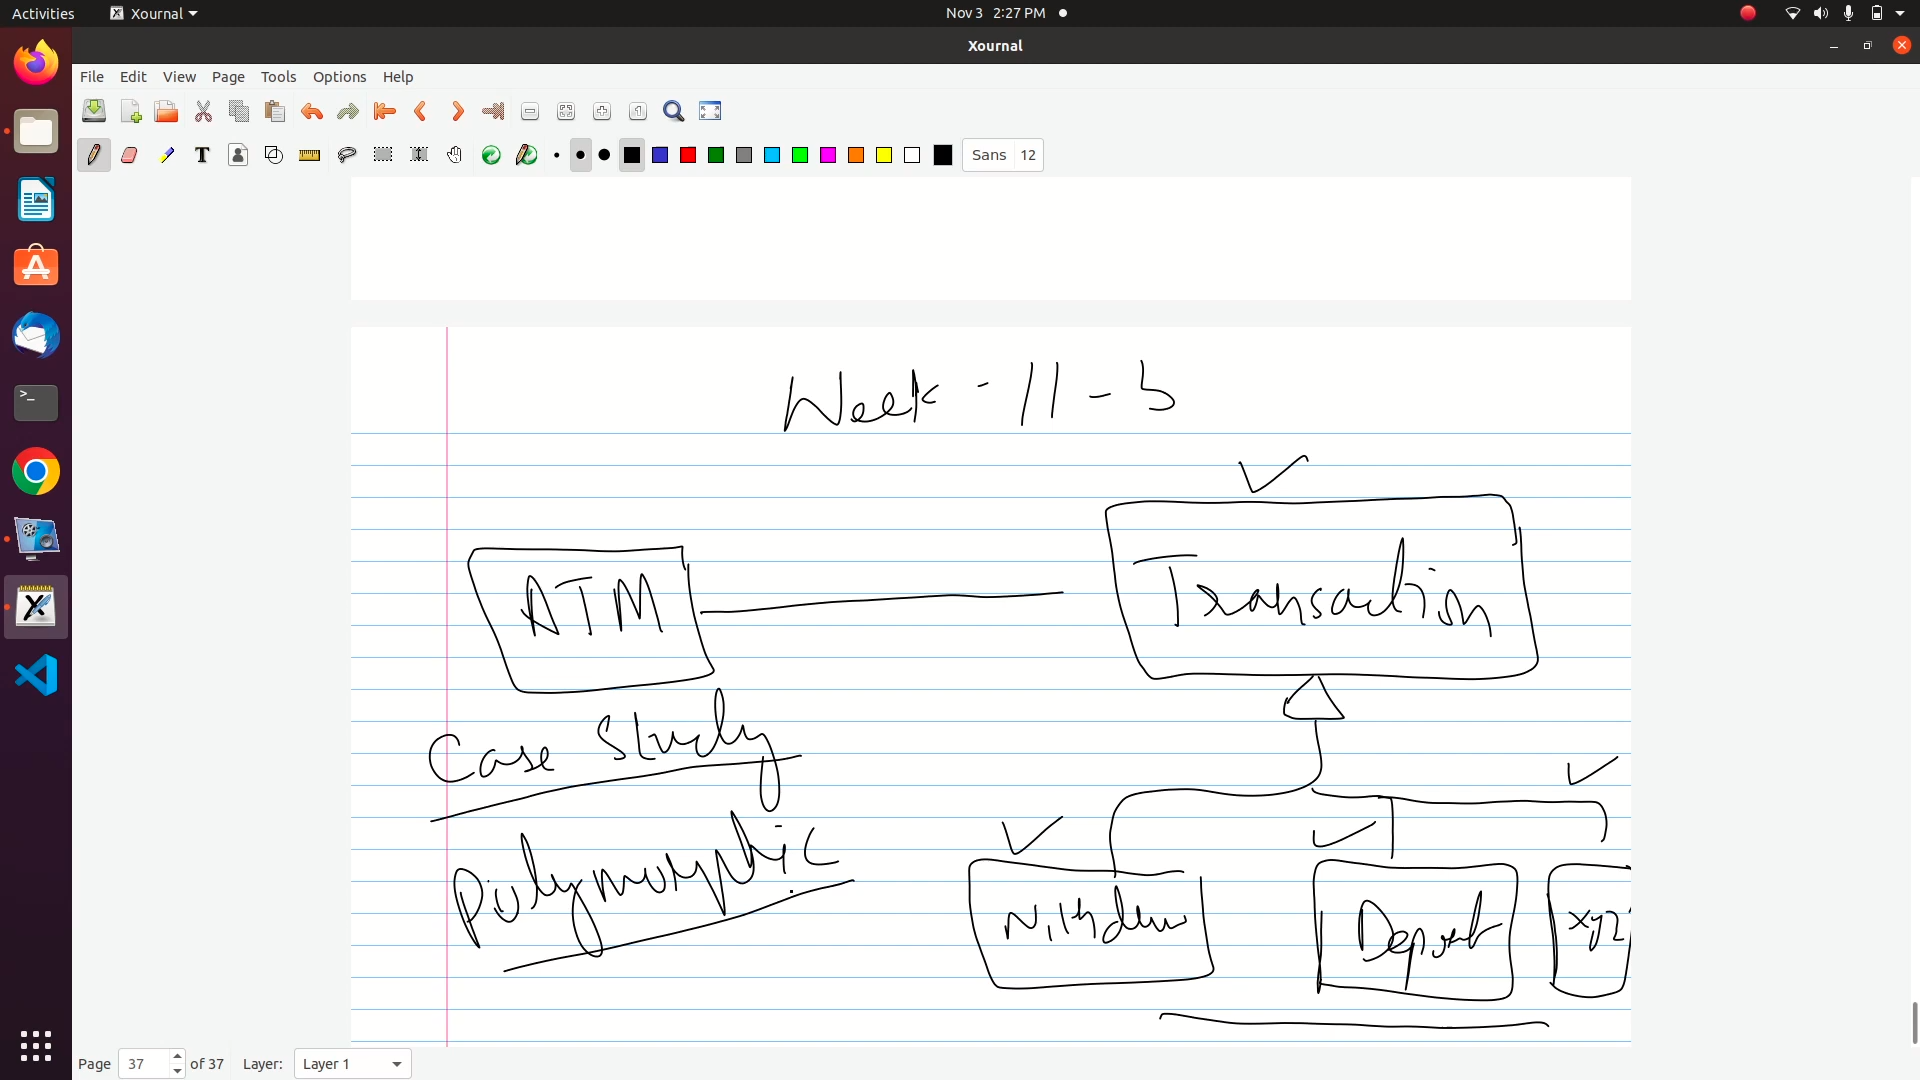 Activities Xournal Nov 3 2:27 PM
Xournal
File Edit View Page Tools Options Help
Sans 12
Week - 11 - 3
ATM
Transaction
Case Study
Polymorphic
Withdraw
Deposit
xyz
Page 37 of 37 Layer: Layer 1